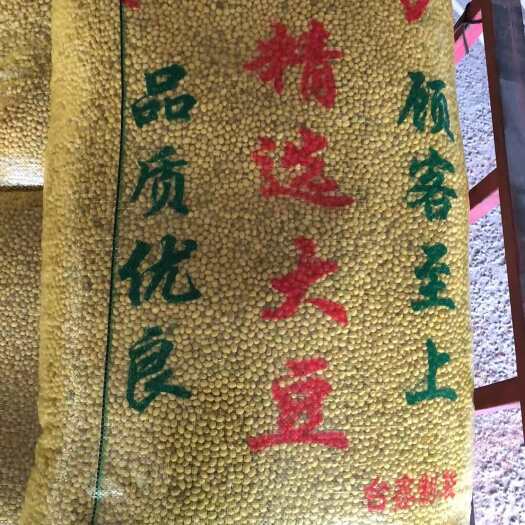 顾客至上
精选大豆
品质优良